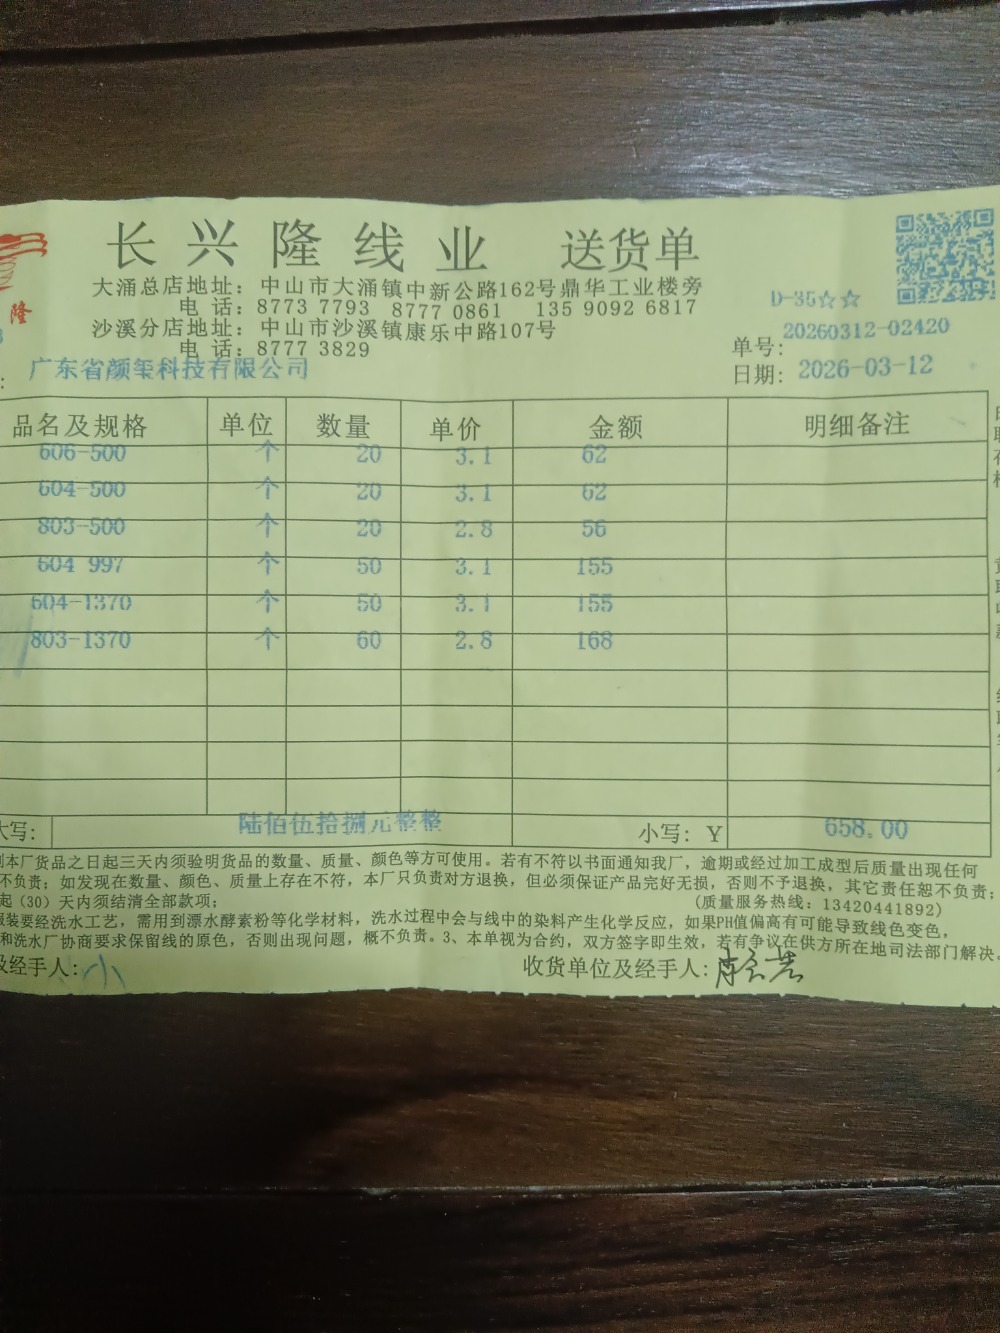 长兴隆线业 送货单
隆
大涌总店地址：中山市大涌镇中新公路162号鼎华工业楼旁
电 话：8773 7793 8777 0861 135 9092 6817
沙溪分店地址：中山市沙溪镇康乐中路107号
电 话：8777 3829
D-35☆☆
单号：20260312-02420
: 广东省颜玺科技有限公司
日期：2026-03-12
品名及规格 单位 数量 单价 金额 明细备注
606-500 个 20 3.1 62
604-500 个 20 3.1 62
803-500 个 20 2.8 56
604 997 个 50 3.1 155
604-1370 个 50 3.1 155
803-1370 个 60 2.8 168
大写: 陆佰伍拾捌元整整 小写: ￥ 658.00
到本厂货品之日起三天内须验明货品的数量、质量、颜色等方可使用。若有不符以书面通知我厂，逾期或经过加工成型后质量出现任何
不负责；如发现在数量、颜色、质量上存在不符，本厂只负责对方退换，但必须保证产品完好无损，否则不予退换，其它责任恕不负责；
起（30）天内须结清全部款项； （质量服务热线：13420441892）
服装要经洗水工艺，需用到漂水酵素粉等化学材料，洗水过程中会与线中的染料产生化学反应，如果PH值偏高有可能导致线色变色，
和洗水厂协商要求保留线的原色，否则出现问题，概不负责。3、本单视为合约，双方签字即生效，若有争议在供方所在地司法部门解决。
及经手人: 小 收货单位及经手人: